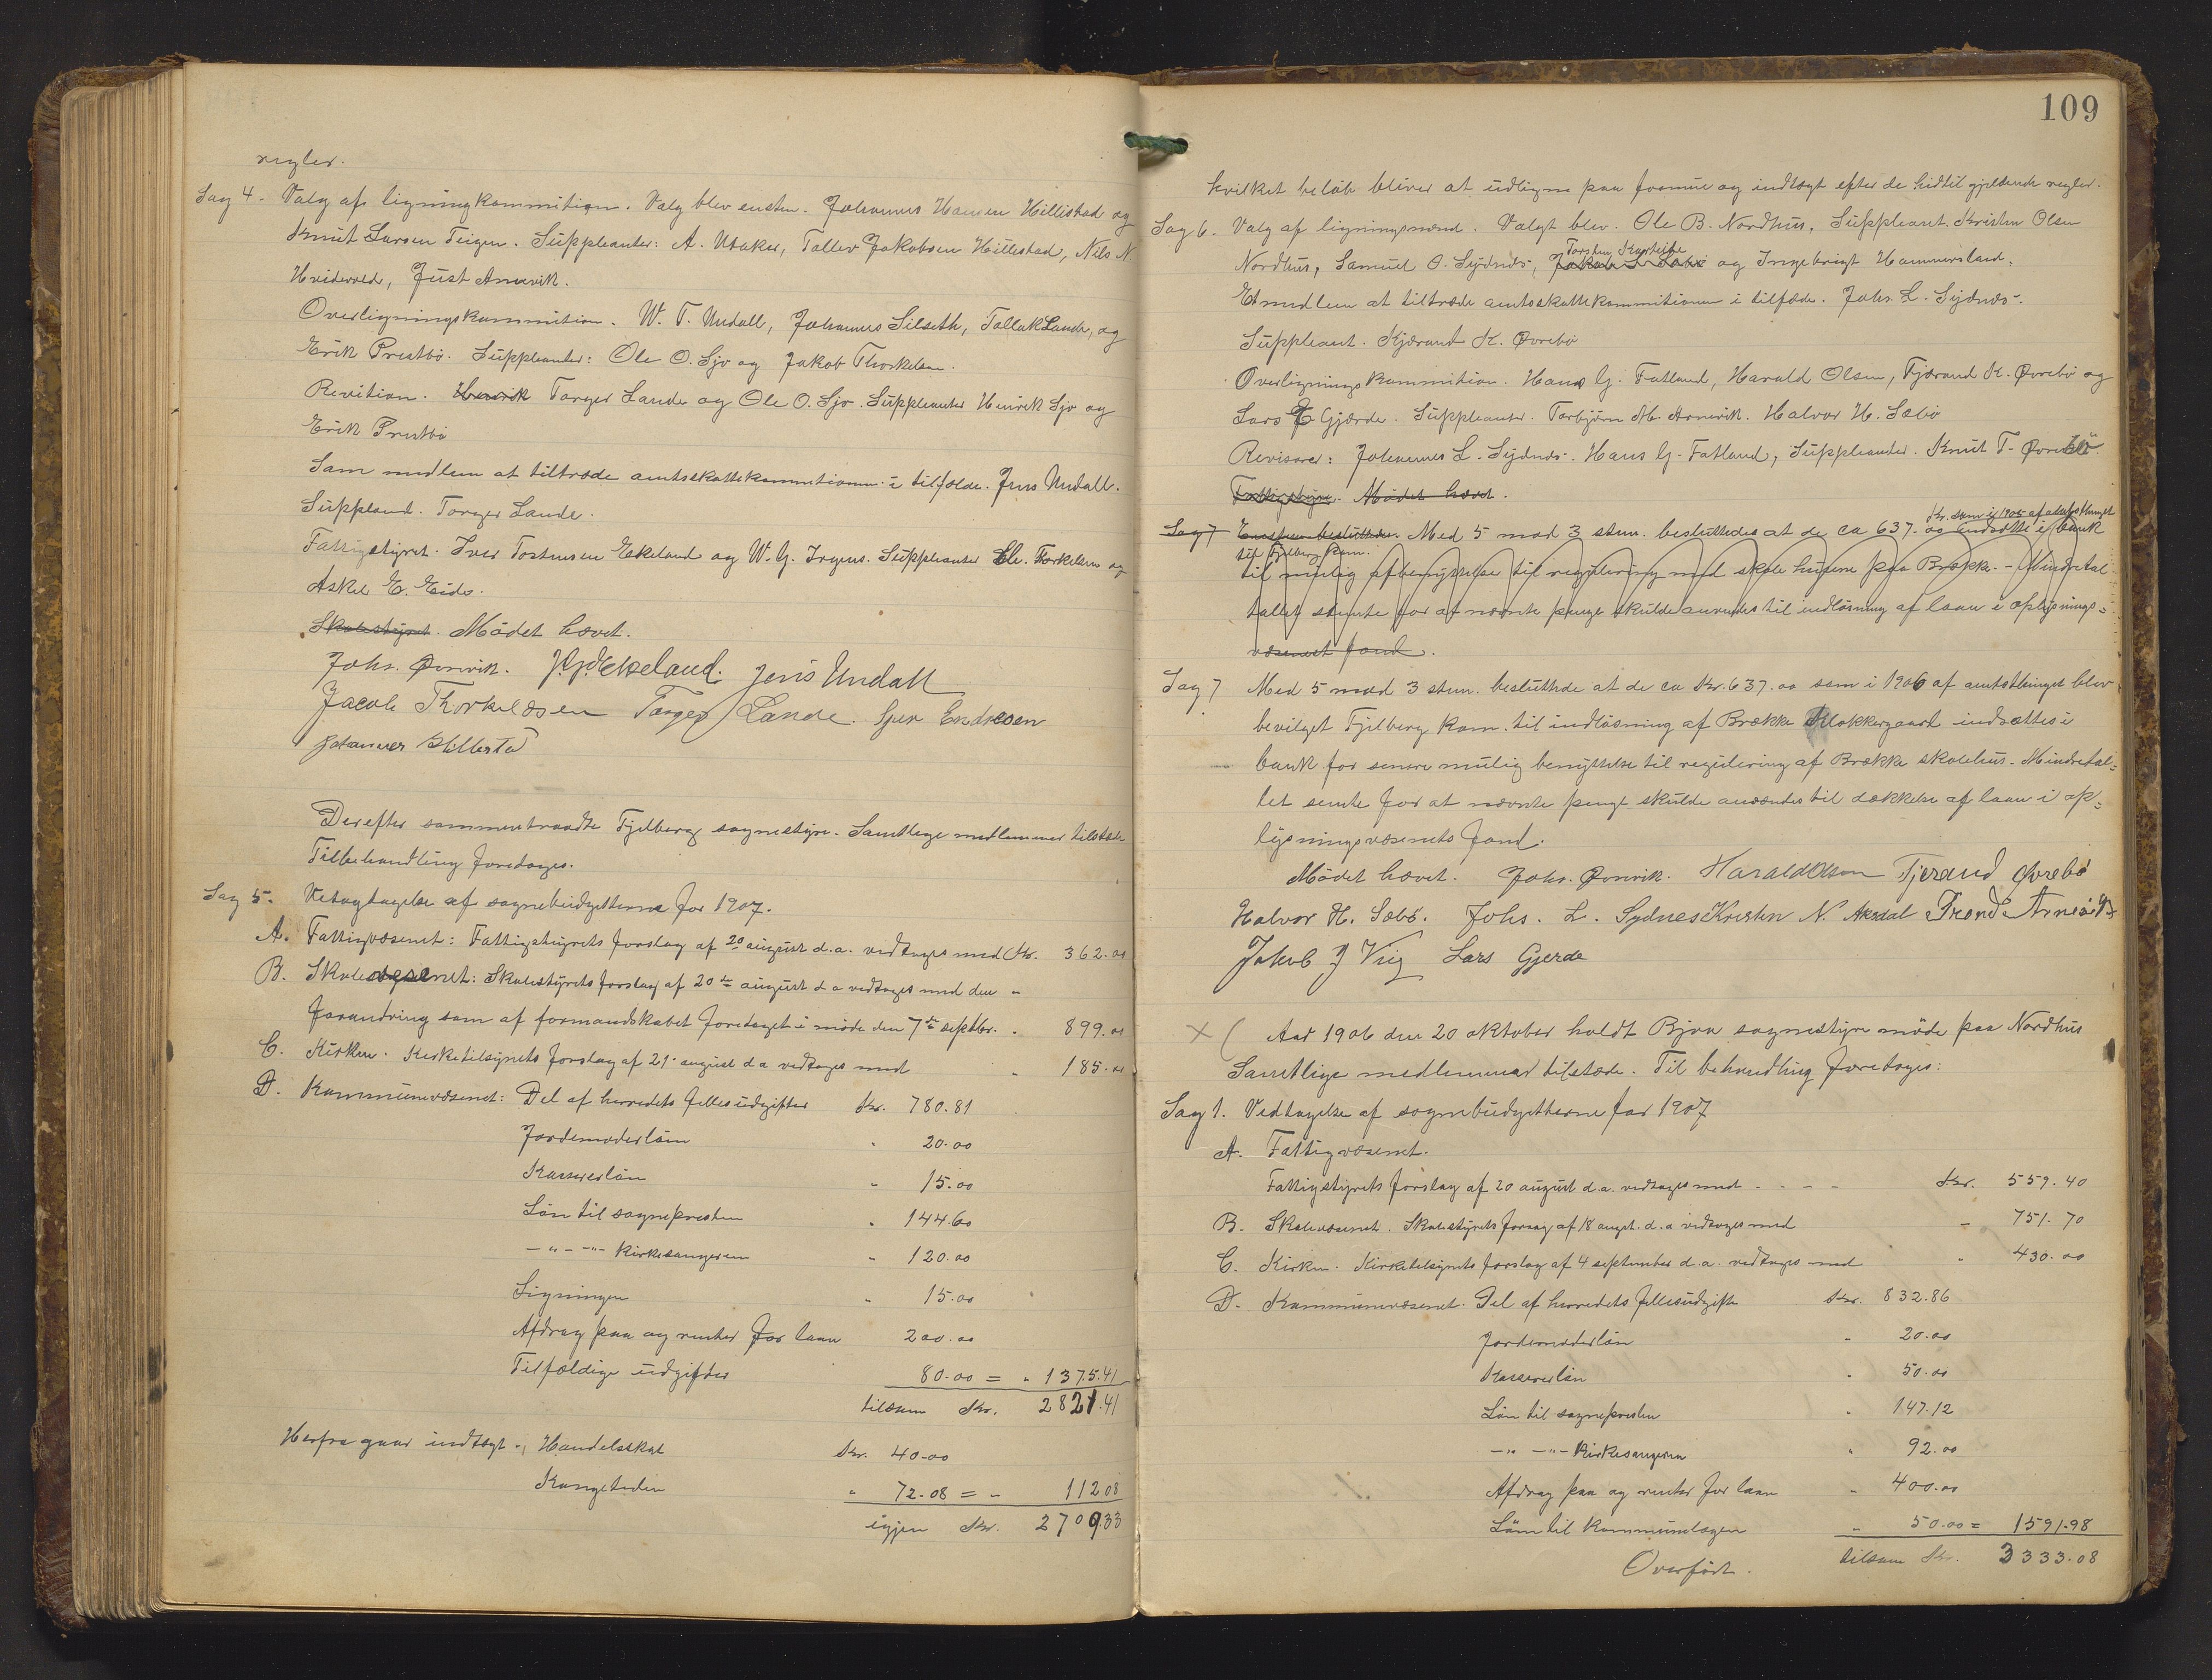 regler.
Sag 4. Valg af ligningkommition. Valg blev ensten. Johannes Hansen Hillistad og
Knut Larsen Teigen. Suppleanter: A. Utaker, Tollev Jakobsen Hillestad, Nils N
Hviderold, Just Arnevik.
Overligningskommition. W. T. Undall, Johannes Silseth, Tollak Lande, og
Erik Prestbø. Suppleanter: Ole O. Sjo og Jakob Thorkelsen.
Revition. Henrik Torger Lande og Ole O. Sjo. Suppleanter Henrik Sjo og
Erik Prestbø
Som medlem at tiltræde amtsskattekommitionen i tilfælde. Jens Undall.
Suppland. Torger Lande.
Fattigstyret. Iver Tostensen Ekeland og W. G. Irgens. Suppleanter Ele. Torkelsen og
Askel E. Eide.
Skolestyret. Mödet hævet.
Johs. Ørnevik. Jens Undall
Jacob Thorkildsen Torger Lande. Sjur Endresen
Johannes Hillestad
Derefter sammentraadte Fjelberg sognestyre. Samtlege medlemmer tilstæde
Tilbehandling foredoges.
Sag 5. Vetagtagelse af sognebudgetterne for 1907.
A. Fattigvæsenet: Fattigstyrets forslag af 20 august d.a. vedtoges med Kr. 362.00
B. Skolevæsenet: Skolestyrets forslag af 20de august d a vedtoges med den "
forandring som af formandskabet foretoget i möde den 7de septbr. " 899.00
C. Kirken. Kirketilsynets forslag af 21. august d a vedtoges med " 185.00
D. Kommunevæsenet: Del af herredets fellesudgifter Kr. 780.81
Jordemoderlön " 20.00
Kassererlön " 15.00
Lön til sognepresten " 144.60
- " - - " - Kirkesangeren " 120.00
Ligningen " 15.00
Afdrag paa og renter for laan 200.00
Tilfældige udgifter 80.00 = " 1375.41
tilsam Kr. 2821.41
Herfra gaar indtægt., Handelsskat Kr. 40.00
Kongetiden " 72.08 = " 112 08
igjen Kr. 2709.33
109
hvilket beløb bliver at udligne paa formue og indtægt efter de hidtil gjældende regler.
Sag 6. Valg af ligningsmænd. Valgt blev. Ole B. Nordhus. Suppleant. Kristen Olsen
Nordhus, Samuel O. Sydnes, Jakob og Ingebrigt Hammersland.
Et medlem at tiltræde amtsskattekommitionen i tilfælde. Johs. L. Sydnes.
Suppleant. Kjærand K. Øvrebø
Overlignings kommition. Hans G. Fatland, Harald Olsen, Tjærand K. Øvrebø og
Lars Gjærde. Suppleanter. Torbjørn M. Arnevik. Halvor H. Sæbø
Revisorer: Johannes L. Sydnes. Hans G. Fatland, Suppleanter. Knut T. Øvrebø
Fattigstyre. Mödet hævet.
Kr. som i 1906 af amtsthinget
Sag 7 Med 5 mod 3 stem. besluttedes at de ca 637.00 indsættes i bank
til Fjelberg kom.
til mulig afbenyttelse til regulering med skole husene paa Brække. - Mindretal
tallet stemte for at nævnte penge skulde anvendes til indløsning af laan i oplysnings=
væsenet fond.
Sag 7 Med 5 mod 3 stem. besluttede at de ca Kr. 637.00 som i 1906 af amtsthinget blev
bevilget Fjelberg kom. til indløsning af Brække Klokkergaard indsættes i
bank for senere mulig benyttelse til regulering af Brække skolehus. Mindretal=
let semte for at nævnte penge skulde anvendes til dækkelse af laan i op=
lysningsvæsenets fond.
Mödet hævet. Johs. Ørnevik. Harald Olsen Tjerand Øvrebø
Halvor H. Sæbö. Johs. L. Sydnes Kristen N. Aksdal Trond Arnevik
Jakob J Vig Lars Gjerde
X ( Aar 1906 den 20 oktober holdt Bjoa sognestyre möde paa Nordhus
Samtlige medlemmer tilstæde. Til behandling foretoges:
Sag 1. Vedtagelse af sognebudgetterne for 1907
A. Fattigvæsenet.
Fattigstyrets forslag af 20 august d.a. vedtoges med - - - - Kr. 559.40
B. Skolevæsenet. Skolestyrets forsag af 18 augst. d.a vedtoges med - 751.70
C. Kirken. Kirketilsynets forslag af 4 september d.a. vedtoges med " 430.00
D. Kommunevæsenet. Del af herredets fellesudgifter Kr. 832.86
Jordemoderlön " 20.00
Kassererlön " 50.00
Lön til sognepresten " 147.12
- " - - " - Kirkesangeren " 92.00
Afdrag paa og renter for laan " 400.00
Lön til kommunelægen " 50.00 = 1591.98
tilsam Kr. 3333.08
Overført.